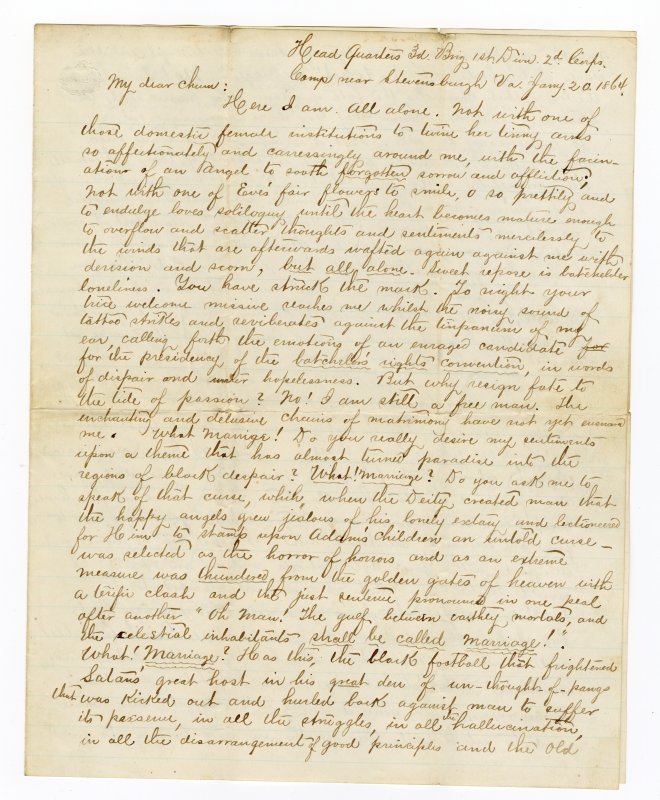 Head Quarters 3d. Brig 1st Divn. 2d. Corps.
Camp near Stevensburgh Va. Jany. 20. 1864.
My dear Chum:
Here I am. All alone. Not with one of
those domestic female institutions to twine her tinny arms
so affectionately and carressingly around me, with the facin-
ations of an Angel to sooth forgotten sorrow and affliction;
Not with one of Eves' fair flowers to smile, O so prettily and
to endulge loves soliloquy until the heart becomes mature enough
to overflow and scatter thoughts and sentiments mercilessly to
the winds that are afterwards wafted again against me with
derision and scorn, but all alone. Sweet repose is batchelder
loneliness. You have struck the mark. To night your
twice welcome missive reaches me whilst the noisy sound of
tattoo strikes and reviberates against the timpanum of my
ear, calling forth the emotions of an enraged candidate for
for the presidency of the batchelor's rights convention, in words
of dispair and utter hopelessness. But why resign fate to
the tide of passion? No! I am still a free man. The
enchanting and delusive chains of matrimony have not yet ensnared
me. What Marriage! Do you really desire my sentiments
upon a theme that has almost turned paradise into the
regions of black despair? What! Marriage? Do you ask me to
speak of that curse, while when the Deity created man that
the happy angels grew jealous of his lonely extacy and lectioneered
for Him to stamp upon Adams children an untold curse -
was selected as the horror of horrors and as an extreme
measure was thundered from the golden gates of heaven with
a terific clash and the just sentence pronounced in one peal
after another "Oh Man! The gulf between earthey mortals, and
the celestial inhabitants shall be called Marriage!".
What! Marriage? Has this, the black football that frightened
Satans' great host in his great den of un-thought-of-pangs
that was kicked out and hurled back against man to suffer
its presence, in all the struggles, in all the hallucination,
in all the disarrangement of good principles and the old